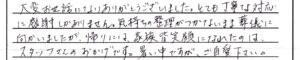 大変お世話になりありがとうございました。とても丁寧な対応
に感謝しかありません。気持ちの整理がつかないまま葬儀に
向かいましたが、帰りには、家族皆笑顔になれたのは、
スタッフさんのおかげです。暑い中ですが、ご自愛下さい。